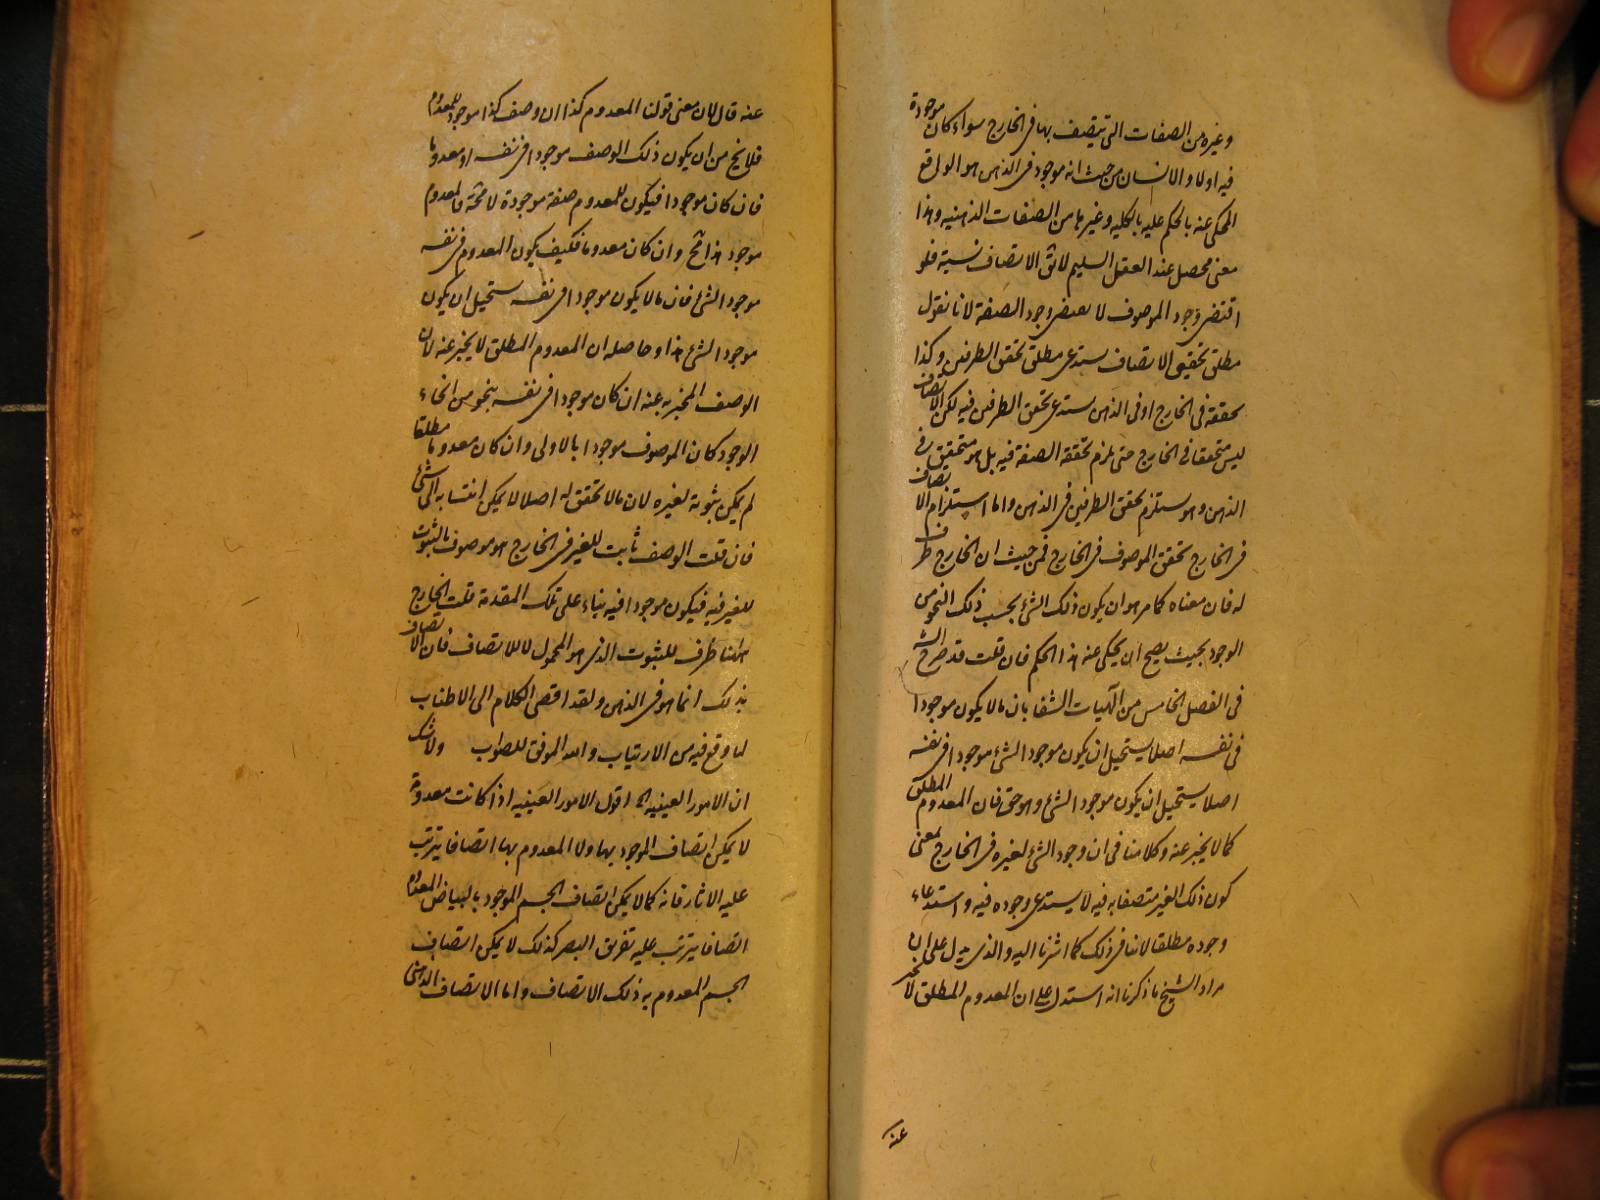 وغيره من الصفات التي تتصف بها في الخارج سواء كان موجودة
فيه اولا والانسان من حيث انه موجود في الذهن هو الواقع
المحكي عنه بالحكم عليه بالكليه وغيرها من الصفات الذهنيه وهذا
معنى محصل عند العقل السليم لاثق الاتصاف نسبة فلو
اقتضى وجود الموصوف لا يقتضي وجود الصفة لانا نقول
مطلق تحقيق الاتصاف يستدعي مطلق تحقق الطرفين وكذا
تحققه في الخارج او في الذهن يستدعي تحقق الطرفين فيه لكن الاتصاف
ليس متحققا في الخارج حتى يلزم تحققه الصفة فيه بل هو متحقق في
الذهن وهو يستلزم تحقق الطرفين في الذهن واما استلزام الاتصاف
في الخارج تحقق الموصوف في الخارج فمن حيث ان الخارج ظرف
له فان معناه كما مر هو ان يكون ذلك الشئ بحسب ذلك النحو من
الوجود بحيث يصح ان يحكى عنه هذا الحكم فان قلت قد صرح الشيخ
في الفصل الخامس من الهيات الشفا بان ما لا يكون موجودا
في نفسه اصلا يستحيل ان يكون موجود الشئ موجودا في نفسه
اصلا يستحيل ان يكون موجود الشئ وهو حق فان المعدوم المطلق
كما لا يخبر عنه وكلامنا في ان وجود الشئ لغيره في الخارج بمعنى
كون ذلك الغير متصفا به فيه لا يستدعي وجوده فيه واستدعاء
وجوده مطلقا لا ينافي ذلك كما اشرنا اليه والذي يدل على ان
مراد الشيخ ما ذكرنا انه استدل على ان المعدوم المطلق لا يخبر
عنه
عنه قال لان معنى قولنا المعدوم كذا ان وصف كذا موجود للمعدوم
فلا يخ من ان يكون ذلك الوصف موجودا في نفسه او معدوما
فان كان موجودا فيكون للمعدوم صفة موجودة لا محة فالمعدوم
موجود هذا مح وان كان معدوما فكيف يكون المعدوم في نفسه
موجود الشئ فان ما لا يكون موجودا في نفسه يستحيل ان يكون
موجود الشئ هذا وحاصله ان المعدوم المطلق لا يخبر عنه لان
الوصف المخبر به عنه ان كان موجودا في نفسه بنحو من انحاء
الوجود كان الموصوف موجودا بالاولى وان كان معدوما مطلقا
لم يمكن ثبوته لغيره لان ما لا تحقق له اصلا لا يمكن انتسابه الى شئ
فان قلت الوصف ثابت للغير في الخارج هو موصوف بالثبوت
للغير فيه فيكون موجودا فيه بناء على تلك المقدمة قلت الخارج
ههنا ظرف للثبوت الذي هو المحمول لا للاتصاف فان الاتصاف
بذلك انما هو في الذهن ولقد افضى الكلام الى الاطناب
لما وقع فيه من الارتياب والله الموفق للصواب ولا شك
ان الامور العينيه الخ اقول الامور العينيه اذا كانت معدومة
لا يمكن اتصاف الموجود بها ولا المعدوم بها اتصافا يترتب
عليه الاثار فانه كما لا يمكن اتصاف الجسم الموجود بالبياض المعدوم
اتصافا يترتب عليه تفريق البصر كذلك لا يمكن اتصاف
الجسم المعدوم به ذلك الاتصاف واما الاتصاف الذهني